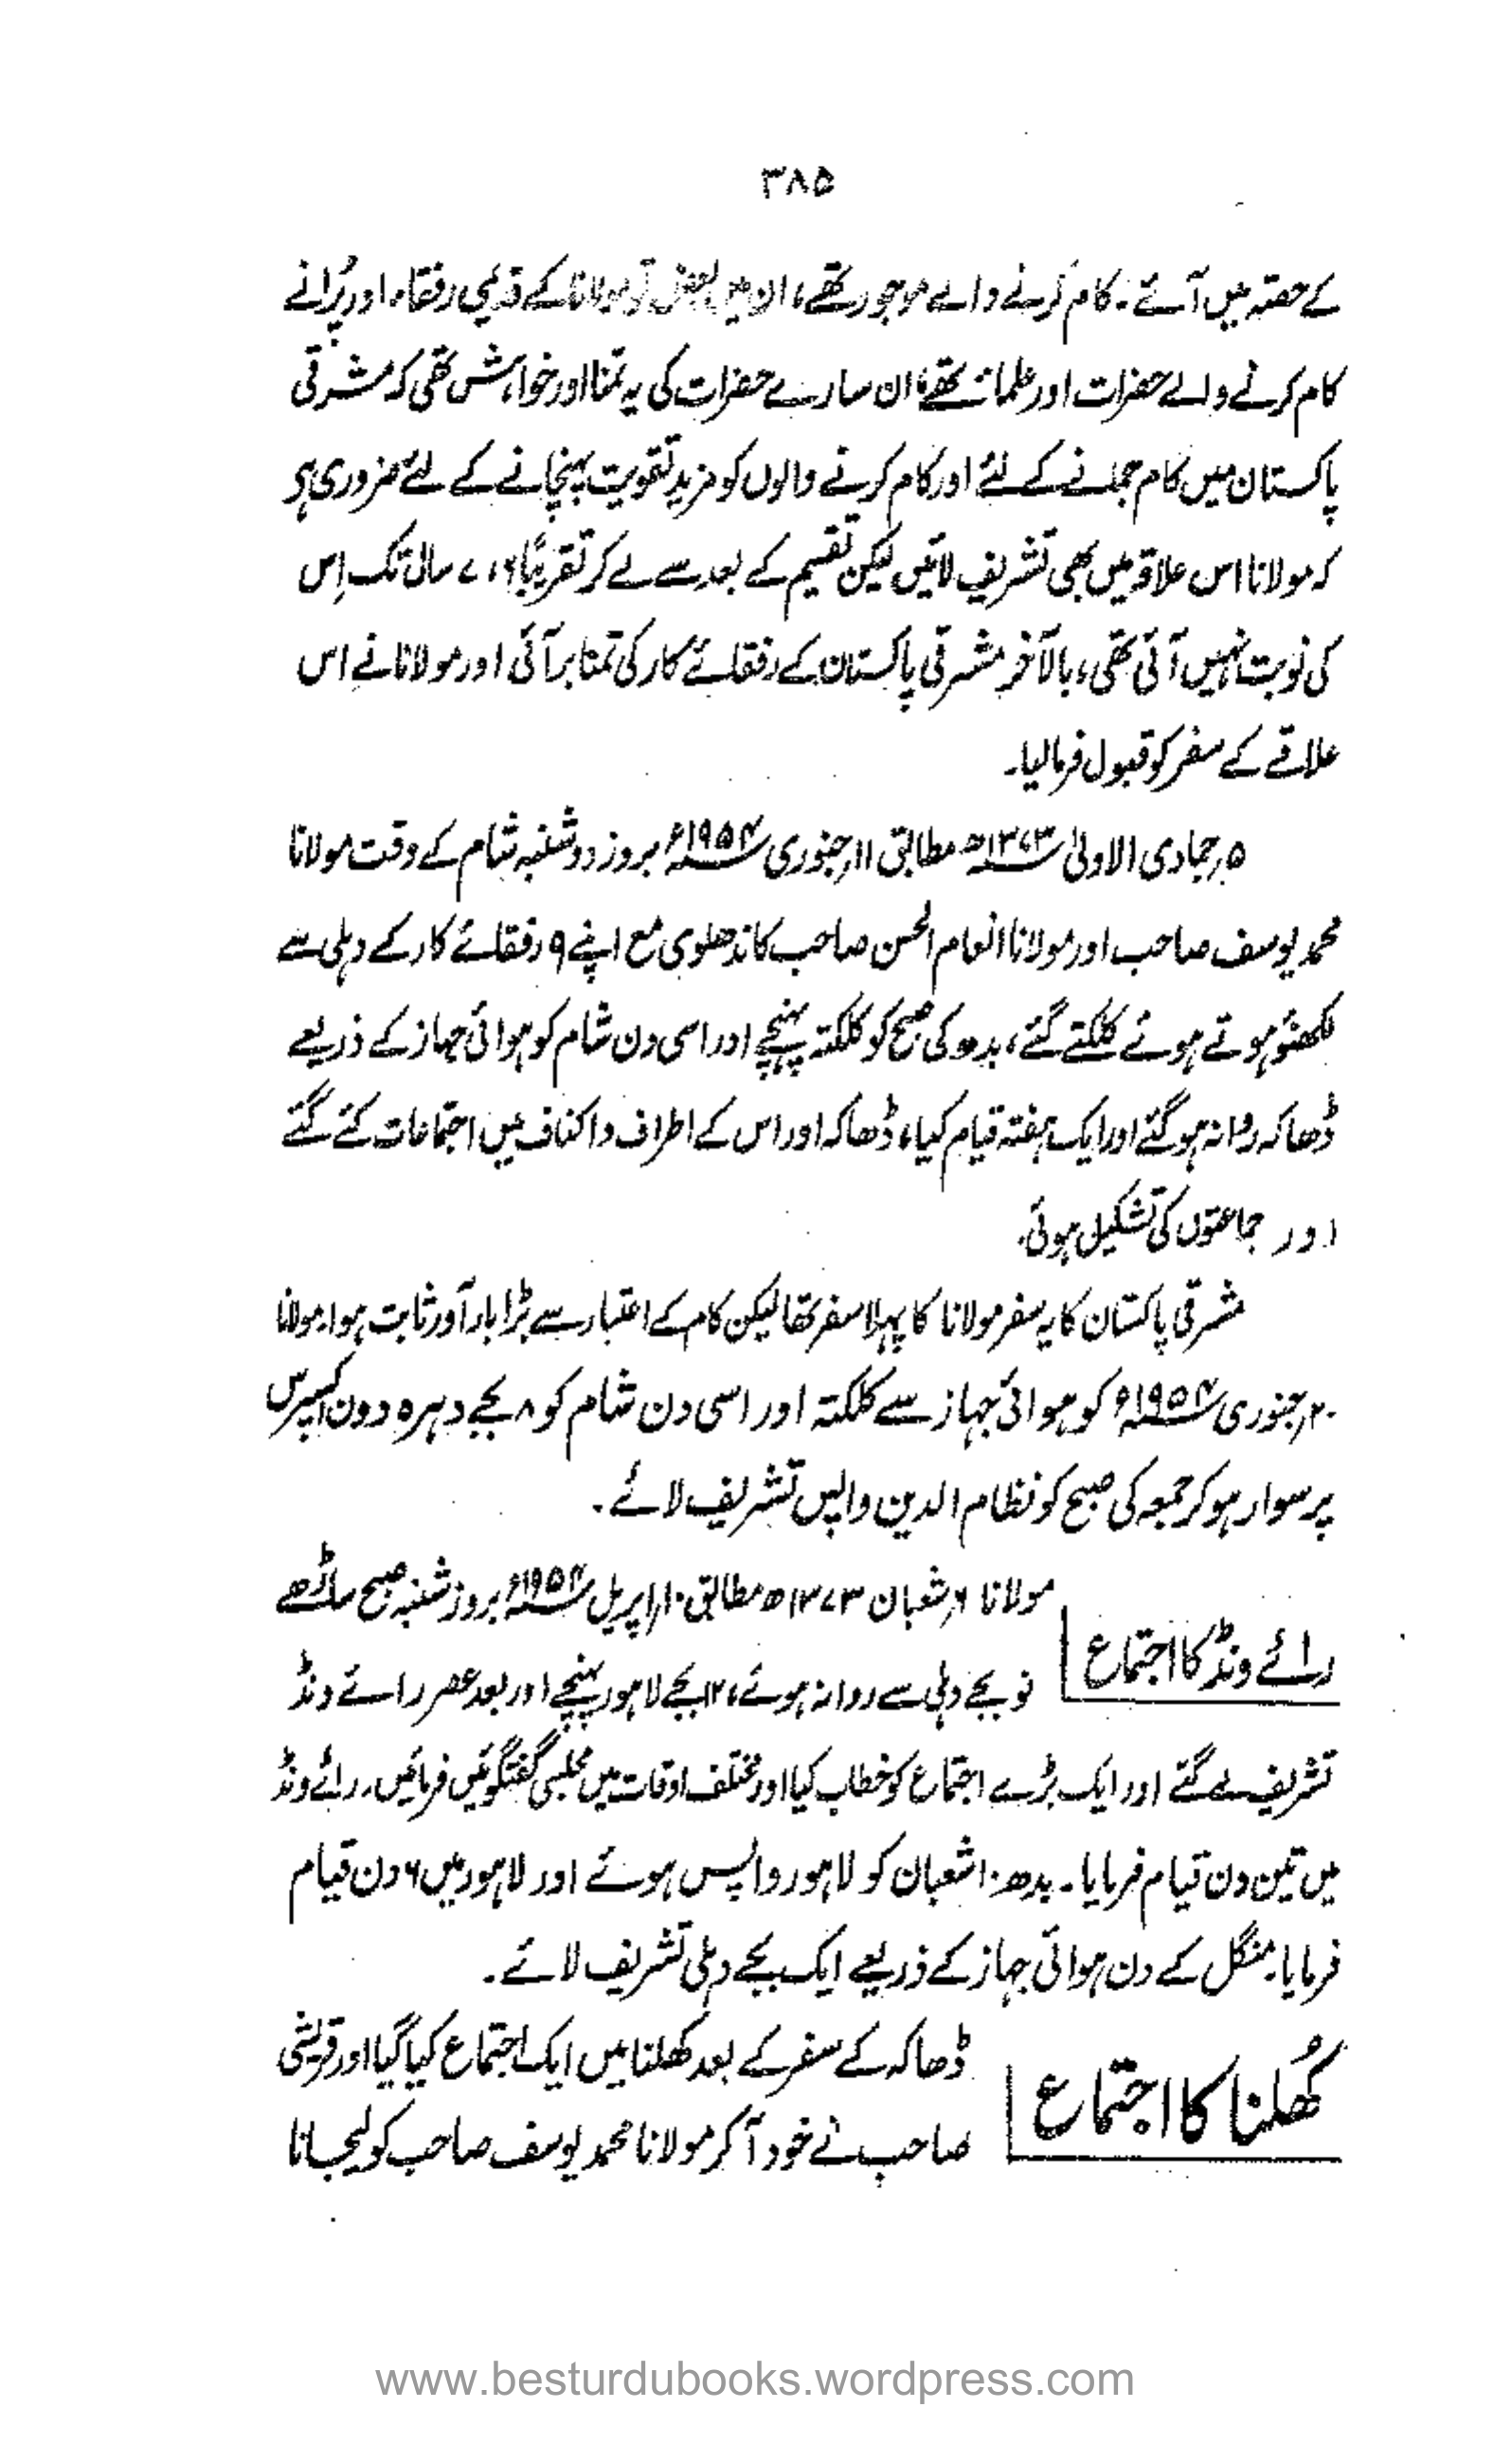 ۳۸۵
کے حصّہ میں آئے۔ کام کرنے والے موجود تھے، ان میں بعض تو مولانا کے قدیمی رفقاء اور پُرانے
کام کرنے والے حضرات اور علماء تھے، ان سارے حضرات کی یہ تمنا اور خواہش تھی کہ مشرقی
پاکستان میں کام جمانے کے لئے اور کام کرنے والوں کو مزید تقویت پہنچانے کے لئے ضروری ہے
کہ مولانا اس علاقہ میں بھی تشریف لائیں لیکن تقسیم کے بعد سے لے کر تقریبًا ۶، ۷ سال تک اِس
کی نوبت نہیں آئی تھی، بالآخر مشرقی پاکستان کے رفقائے کار کی تمنا بر آئی اور مولانا نے اس
علاقے کے سفر کو قبول فرمالیا۔
۵؍جمادی الاولیٰ ۱۳۷۳ھ مطابق ۱۱؍جنوری ۱۹۵۴ء بروز دوشنبہ شام کے وقت مولانا
محمد یوسف صاحب اور مولانا انعام الحسن صاحب کاندھلوی مع اپنے ۹ رفقائے کار کے دہلی سے
لکھنؤ ہوتے ہوئے کلکتے گئے، بدھ کی صبح کو کلکتہ پہنچے اور اسی دن شام کو ہوائی جہاز کے ذریعے
ڈھاکہ روانہ ہوگئے اور ایک ہفتہ قیام کیا، ڈھاکہ اور اس کے اطراف و اکناف میں اجتماعات کئے گئے
اور جماعتوں کی تشکیل ہوئی۔
مشرقی پاکستان کا یہ سفر مولانا کا پہلا سفر تھا لیکن کام کے اعتبار سے بڑا بار آور ثابت ہوا۔ مولانا
۲۰؍جنوری ۱۹۵۴ء کو ہوائی جہاز سے کلکتہ اور اسی دن شام کو ۸ بجے دہرہ دون اکسپرس
پر سوار ہو کر جمعہ کی صبح کو نظام الدین واپس تشریف لائے۔
رائے ونڈ کا اجتماع
مولانا ۶؍شعبان ۱۳۷۳ھ مطابق ۱۰؍اپریل ۱۹۵۴ء بروز شنبہ صبح ساڑھے
نو بجے دہلی سے روانہ ہوئے، ۱۲ بجے لاہور پہنچے اور بعد عصر رائے ونڈ
تشریف لے گئے اور ایک بڑے اجتماع کو خطاب کیا اور مختلف اوقات میں مجلسی گفتگوئیں فرمائیں۔ رائے ونڈ
میں تین دن قیام فرمایا۔ بدھ ۱۰ شعبان کو لاہور واپس ہوئے اور لاہور میں ۶ دن قیام
فرمایا۔ منگل کے دن ہوائی جہاز کے ذریعے ایک بجے دہلی تشریف لائے۔
کُھلنا کا اجتماع
ڈھاکہ کے سفر کے بعد کھلنا میں ایک اجتماع کیا گیا اور قریشی
صاحب نے خود آکر مولانا محمد یوسف صاحب کو لیجانا
www.besturdubooks.wordpress.com